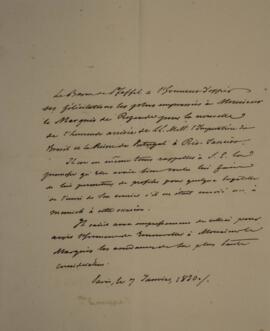 Le Baron de Staffel a l'honneur d'offrir
ses félicitations les plus empressées à Monsieur
le Marquis de Rezende pour la nouvelle
de l'heureuse arrivée de LL. MM. l'Impératrice du
Brésil et la Reine de Portugal à Rio-Janeiro.
Il ose en même tems rappeller à S. E. la
promesse qu'Elle avait bien voulu lui faire
de lui permettre de profiter pour quelque
de l'envoi de Son courrier s'il en était envoié un à
Munich à cette occasion.
Il saisit avec empressement cette pour
avoir l'honneur de renouveller à Monsieur le
Marquis les assurances de sa plus haute
considération.
Paris, le 7 Janvier, 1830.